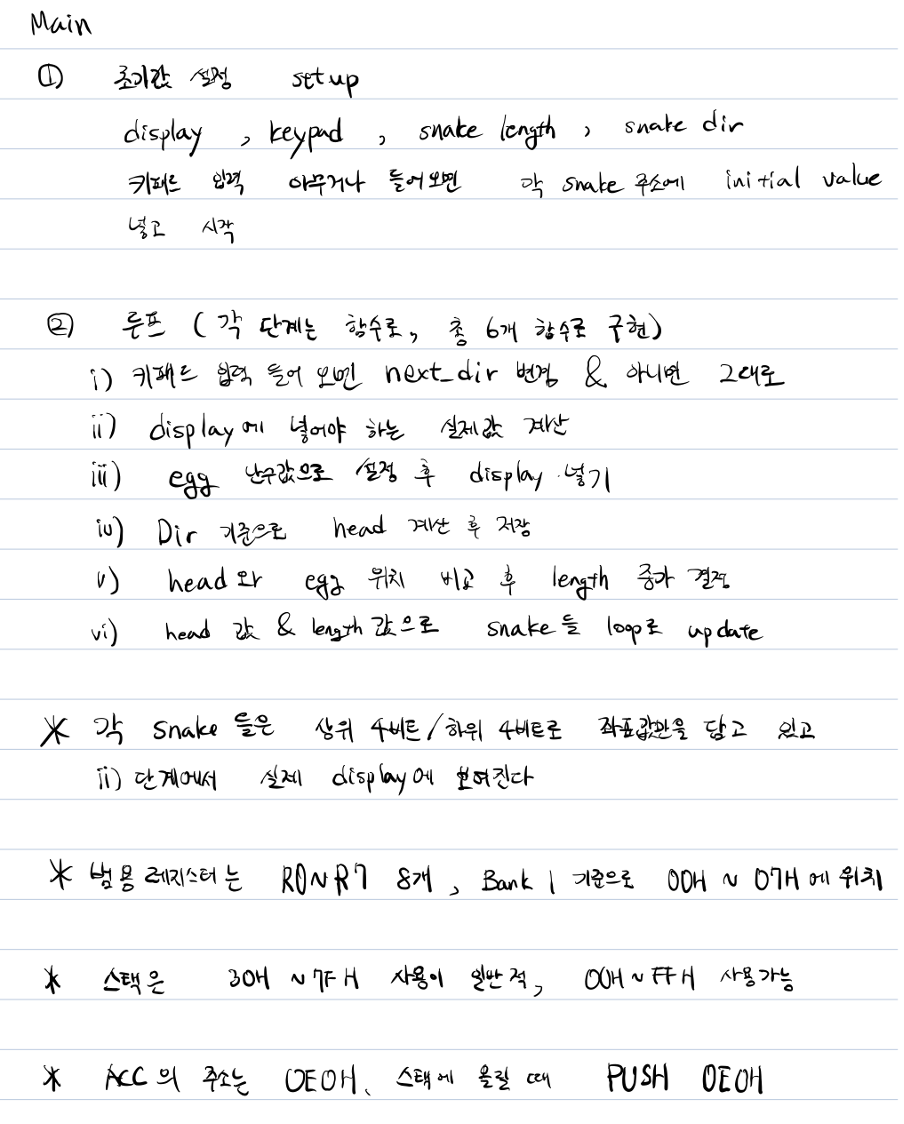 Main
① 초기값 설정 set up
display , keypad , snake length , snake dir
키패드 입력 아무거나 들어오면 각 snake 주소에 initial value
넣고 시작
② 루프 (각 단계는 함수로, 총 6개 함수로 구현)
i) 키패드 입력 들어 오면 next_dir 변경 & 아니면 그대로
ii) display에 넣어야 하는 실제값 계산
iii) egg 난수값으로 설정 후 display 넣기
iv) Dir 기준으로 head 계산 후 저장
v) head 와 egg 위치 비교 후 length 증가 결정
vi) head 값 & length 값으로 snake들 loop로 update
* 각 snake 들은 상위 4비트/하위 4비트로 좌표값만을 담고 있고
ii) 단계에서 실제 display에 보여진다
* 범용 레지스터는 R0~R7 8개, Bank 1 기준으로 00H ~ 07H에 위치
* 스택은 30H ~ 7FH 사용이 일반적, 00H~FFH 사용가능
* ACC의 주소는 0E0H, 스택에 올릴 때 PUSH 0E0H